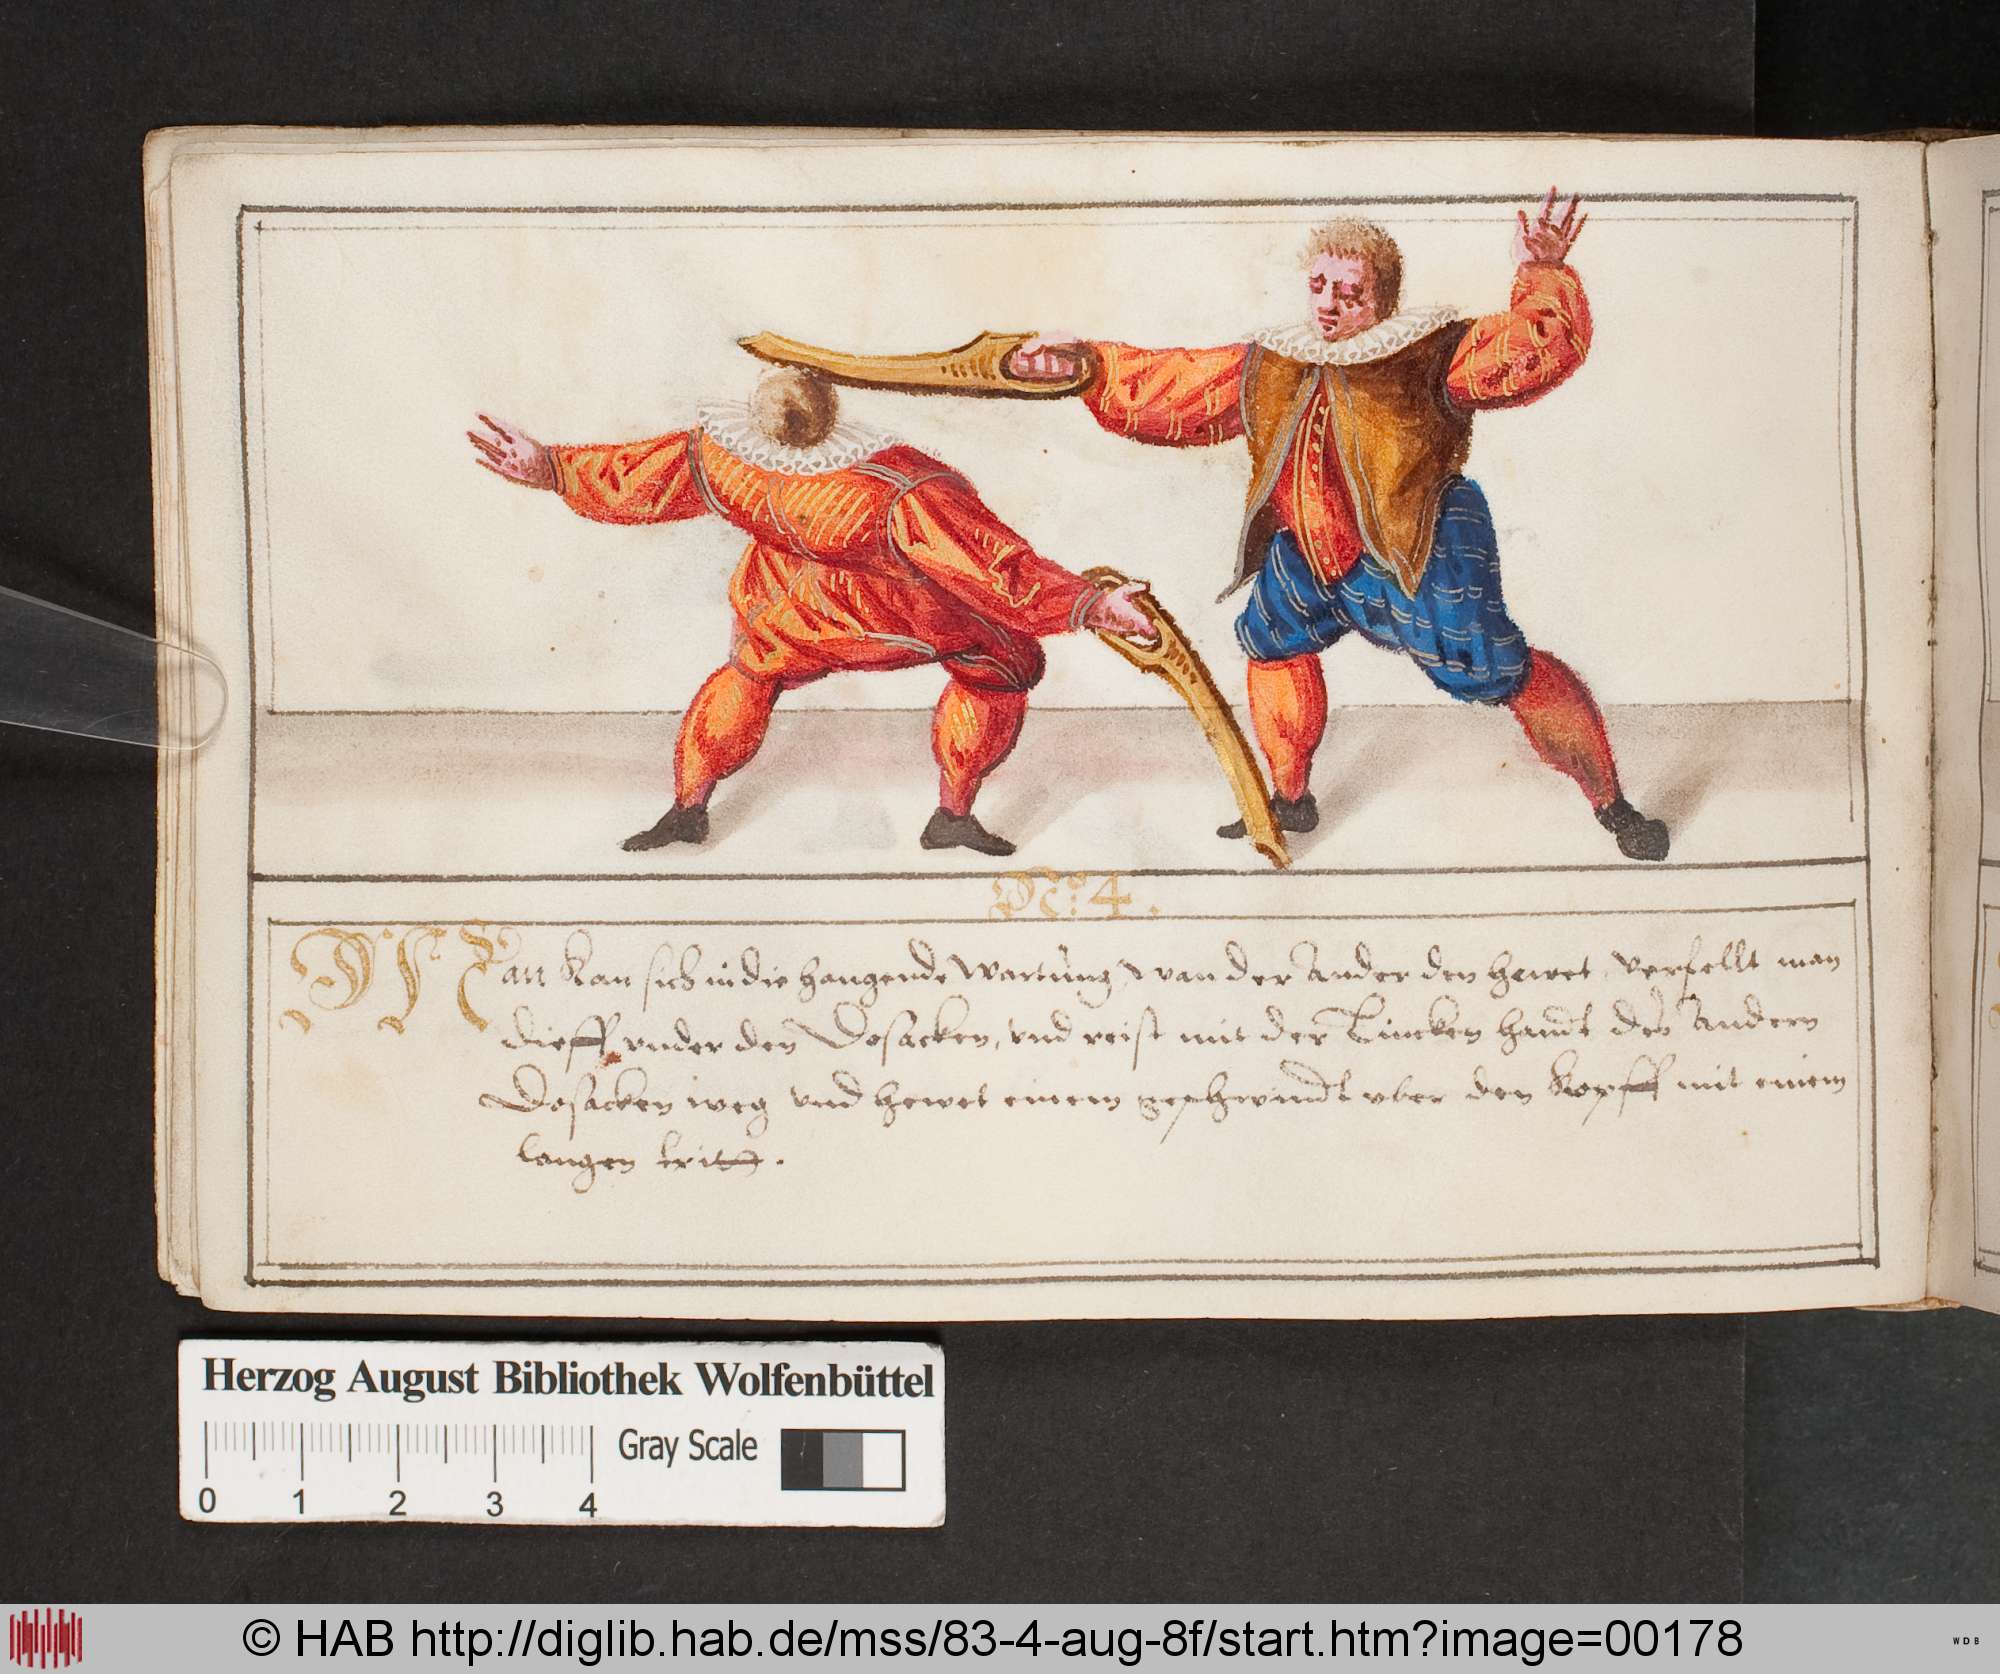 No: 4.
Man kan sich in die hangende wartung, wan der Ander den hewet, verfellt man
dieff vnder den Dosacken, vnd reist mit der Lincken handt des Andern
Dosacken weg vnd hewet einem geschwindt vber den Kopff mit einem
langen tritt.
Herzog August Bibliothek Wolfenbüttel
Gray Scale
0 1 2 3 4
© HAB http://diglib.hab.de/mss/83-4-aug-8f/start.htm?image=00178
WDB